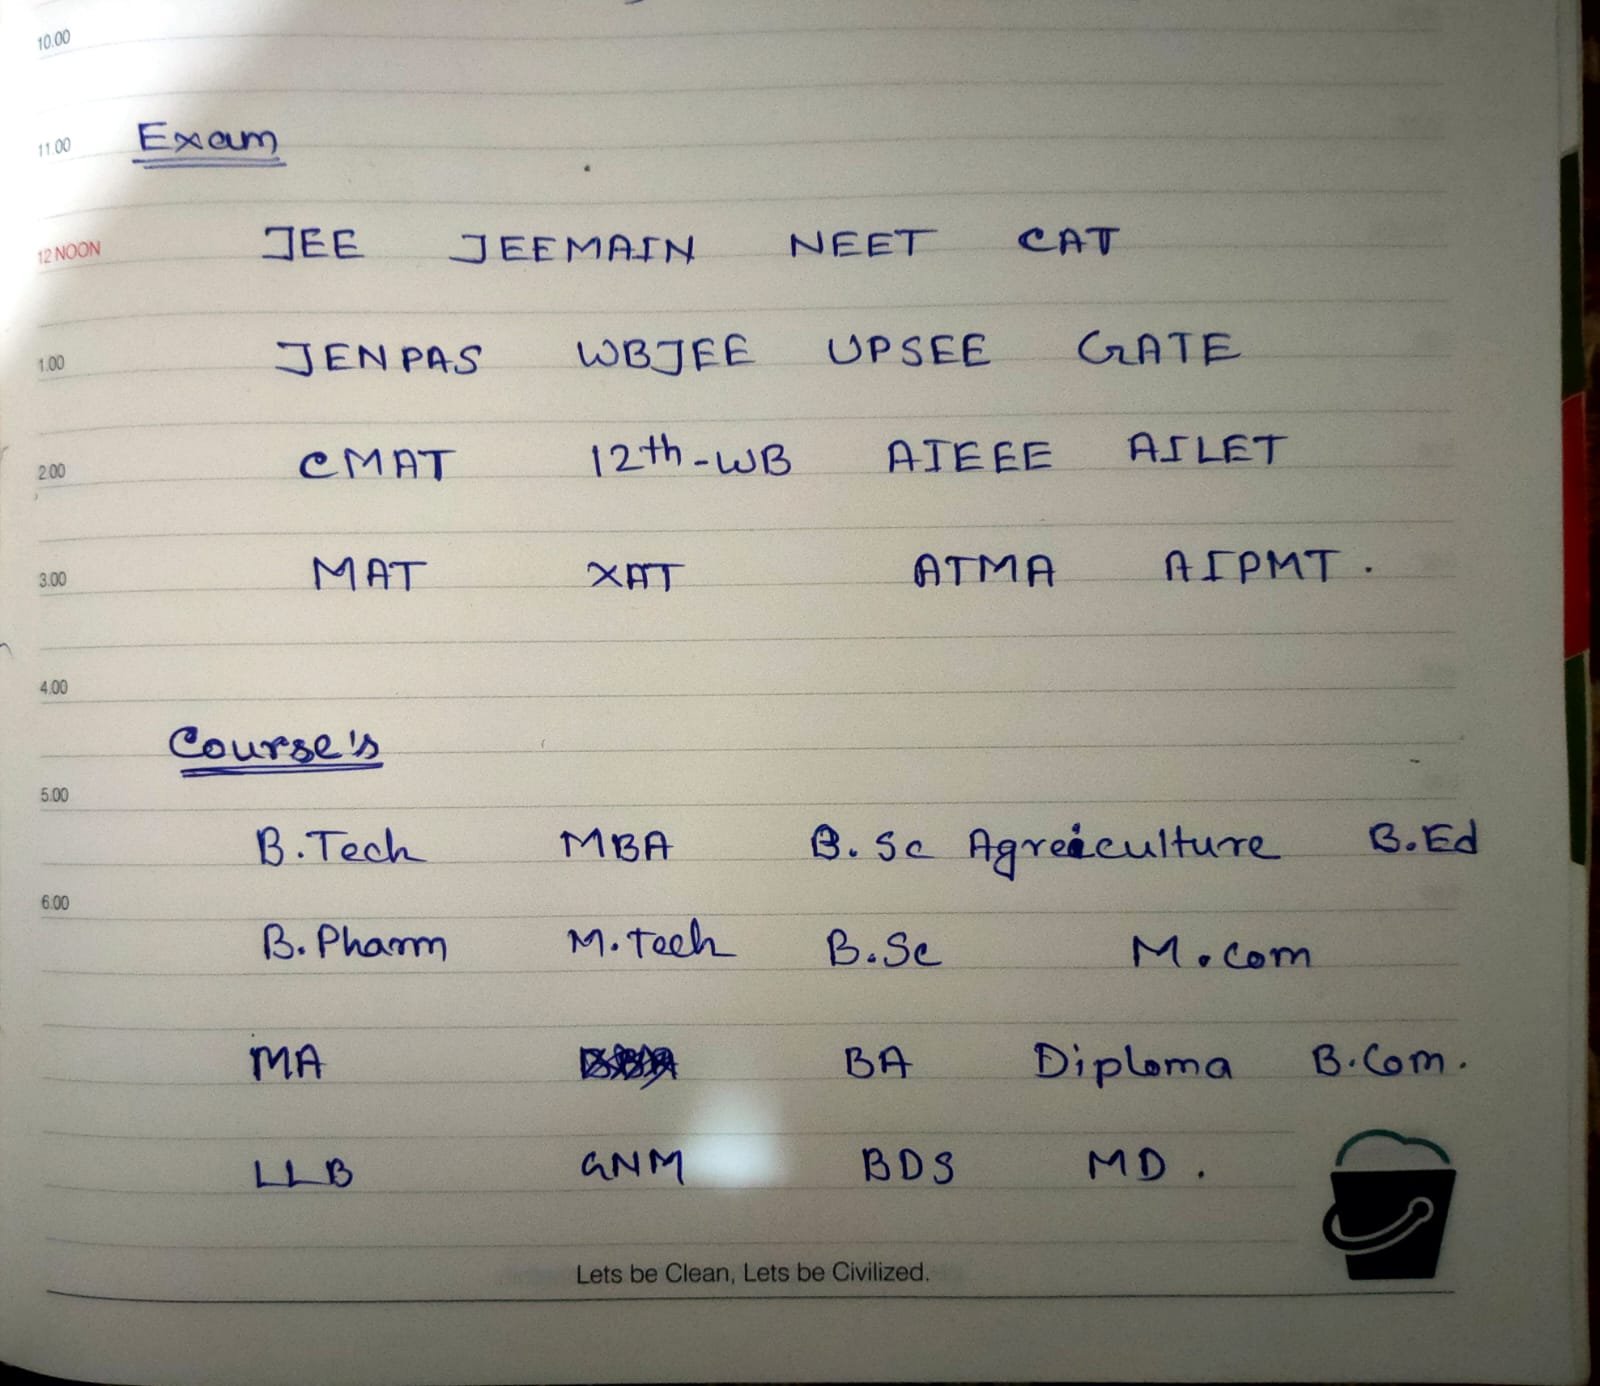 10.00
11.00 Exam
12 NOON JEE JEEMAIN NEET CAT
1.00 JENPAS WBJEE UPSEE GATE
2.00 CMAT 12th-WB AIEEE AILET
3.00 MAT XAT ATMA AIPMT.
4.00
Course's
5.00
B.Tech MBA B.Sc Agreiculture B.Ed
6.00
B.Pharm M.Tech B.Sc M.com
MA BA Diploma B.Com.
LLB GNM BDS MD.
Lets be Clean, Lets be Civilized.